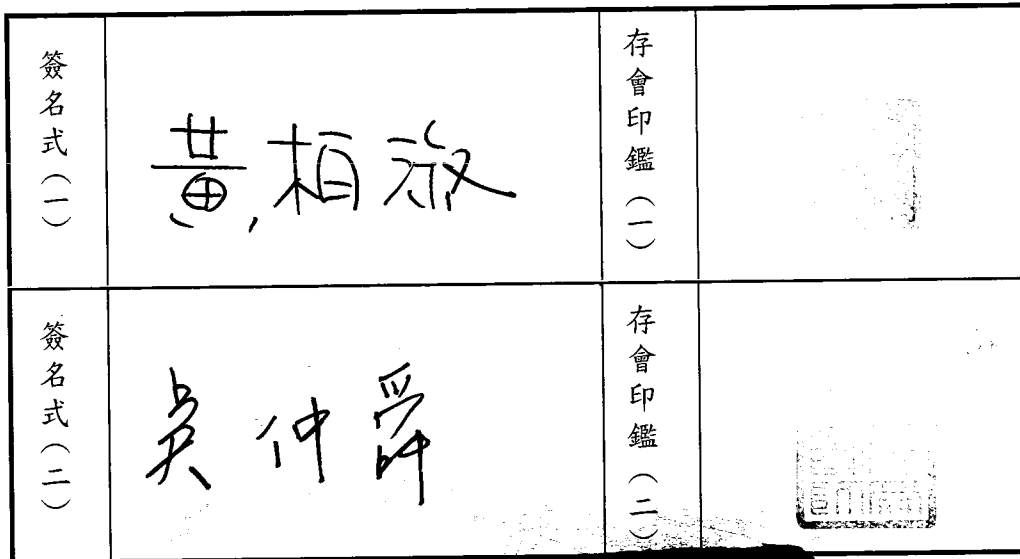 簽名式（一）
黃柏淑
存會印鑑（一）
簽名式（二）
吳仲舜
存會印鑑（二）